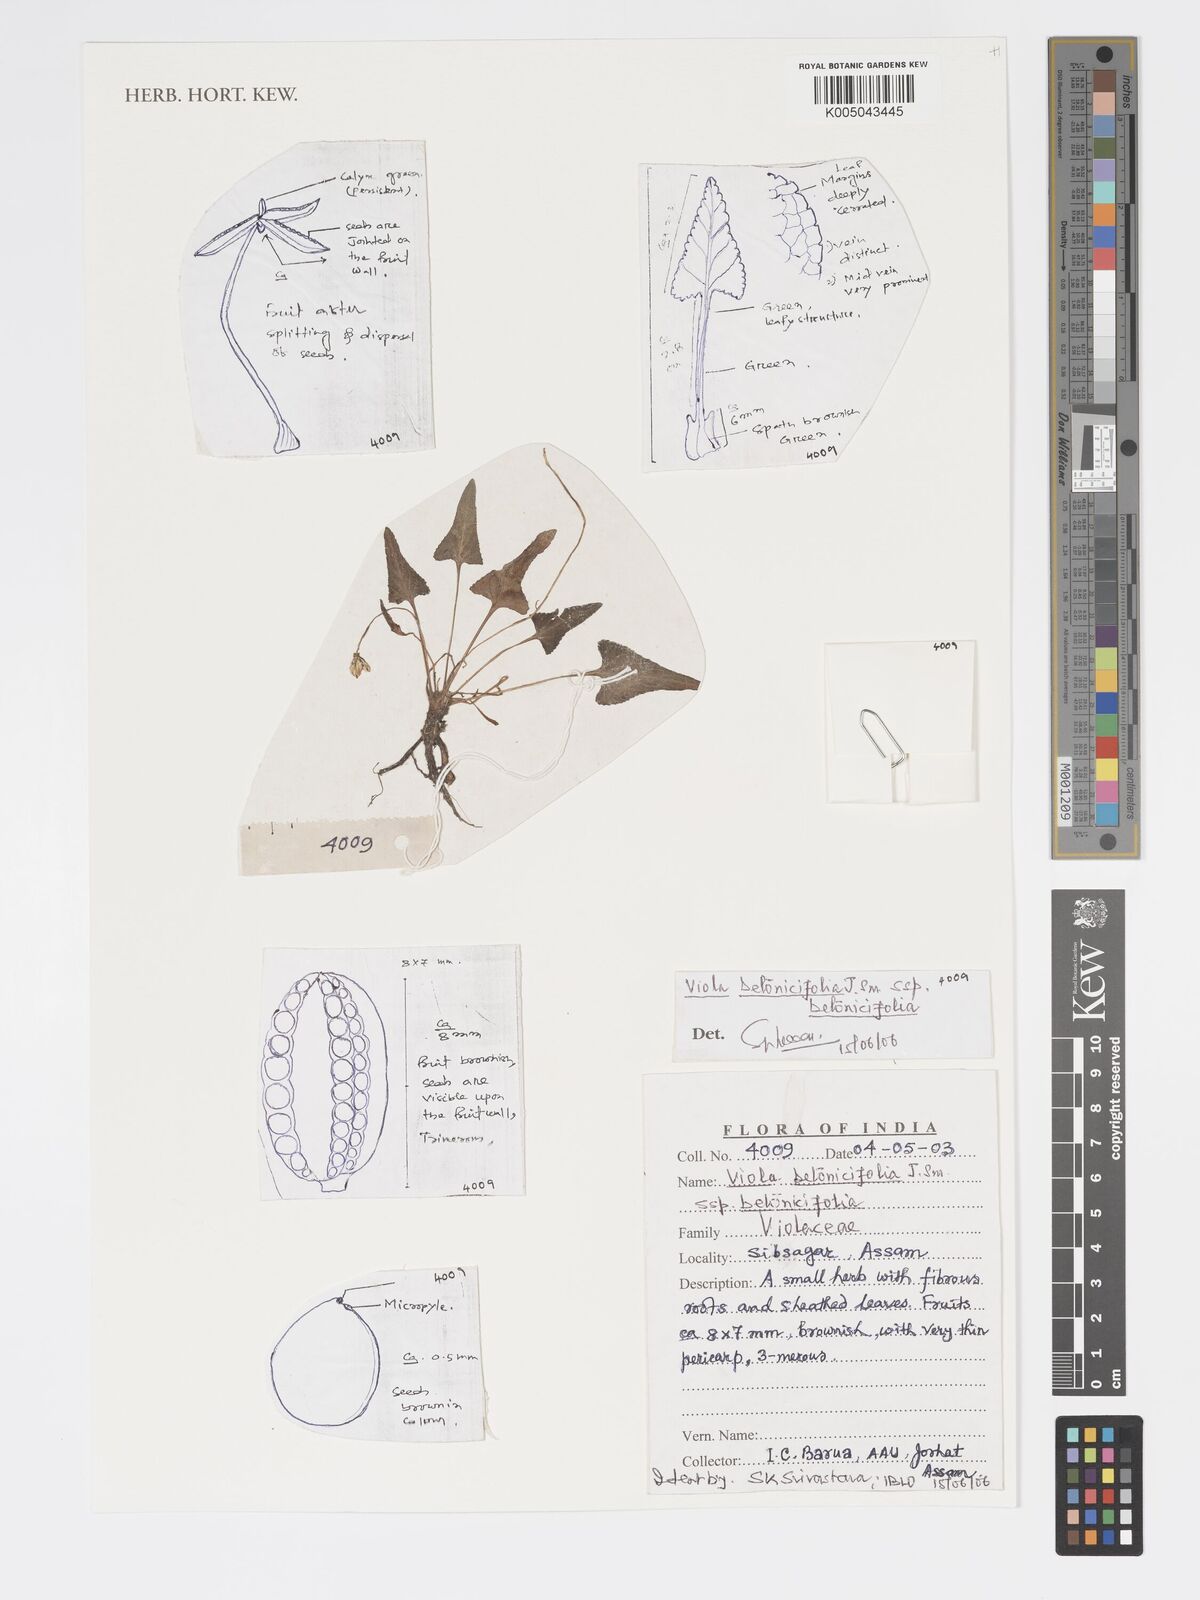 HERB. HORT. KEW.
ROYAL BOTANIC GARDENS KEW
K005043445
Calyx green
(persistent).
seeds are
Jointed on
the fruit
wall.
Ca
Fruit after
splitting & dispersal
of seeds.
4009
Leaf
Margins
deeply
serrated.
1) vein
distinct.
2) Mid vein
very prominent
Green,
leafy structure.
Green.
6mm
Spath brownish
Green.
4009
4009
4009
8x7 mm.
Ca
8mm
Fruit brownish,
seeds are
visible upon
the fruit wall,
Trimerous,
4009
4009
Micropyle.
Ca. 0.5mm
seeds
brownish
colour.
Viola betonicifolia J. Sm ssp. 4009
betonicifolia
Det. 15/06/06
FLORA OF INDIA
Coll. No. 4009 Date 04-05-03
Name: Viola betonicifolia J. Sm
ssp. betonicifolia
Family Violaceae
Locality: Sibsagar, Assam
Description: A small herb with fibrous
roots and sheathed leaves. Fruits
ca 8x7 mm, brownish, with very thin
pericarp, 3-merous.
Vern. Name:
Collector: I.C. Barua, AAU, Jorhat
Assam
Ident by. SK Srivastava, 15/06/06
inches
centimeters
Density
Don Williams
M001209
Royal Botanic Gardens
Kew
copyright reserved
0 1 2 3 4 5 6 7 8 9 10
cm